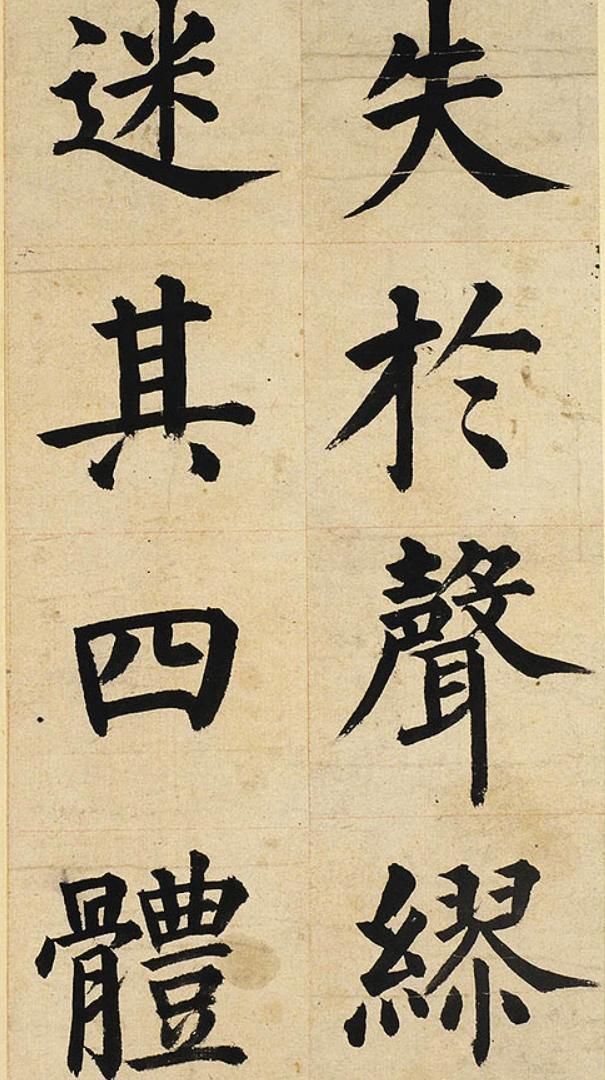 失於聲繆
迷其四體